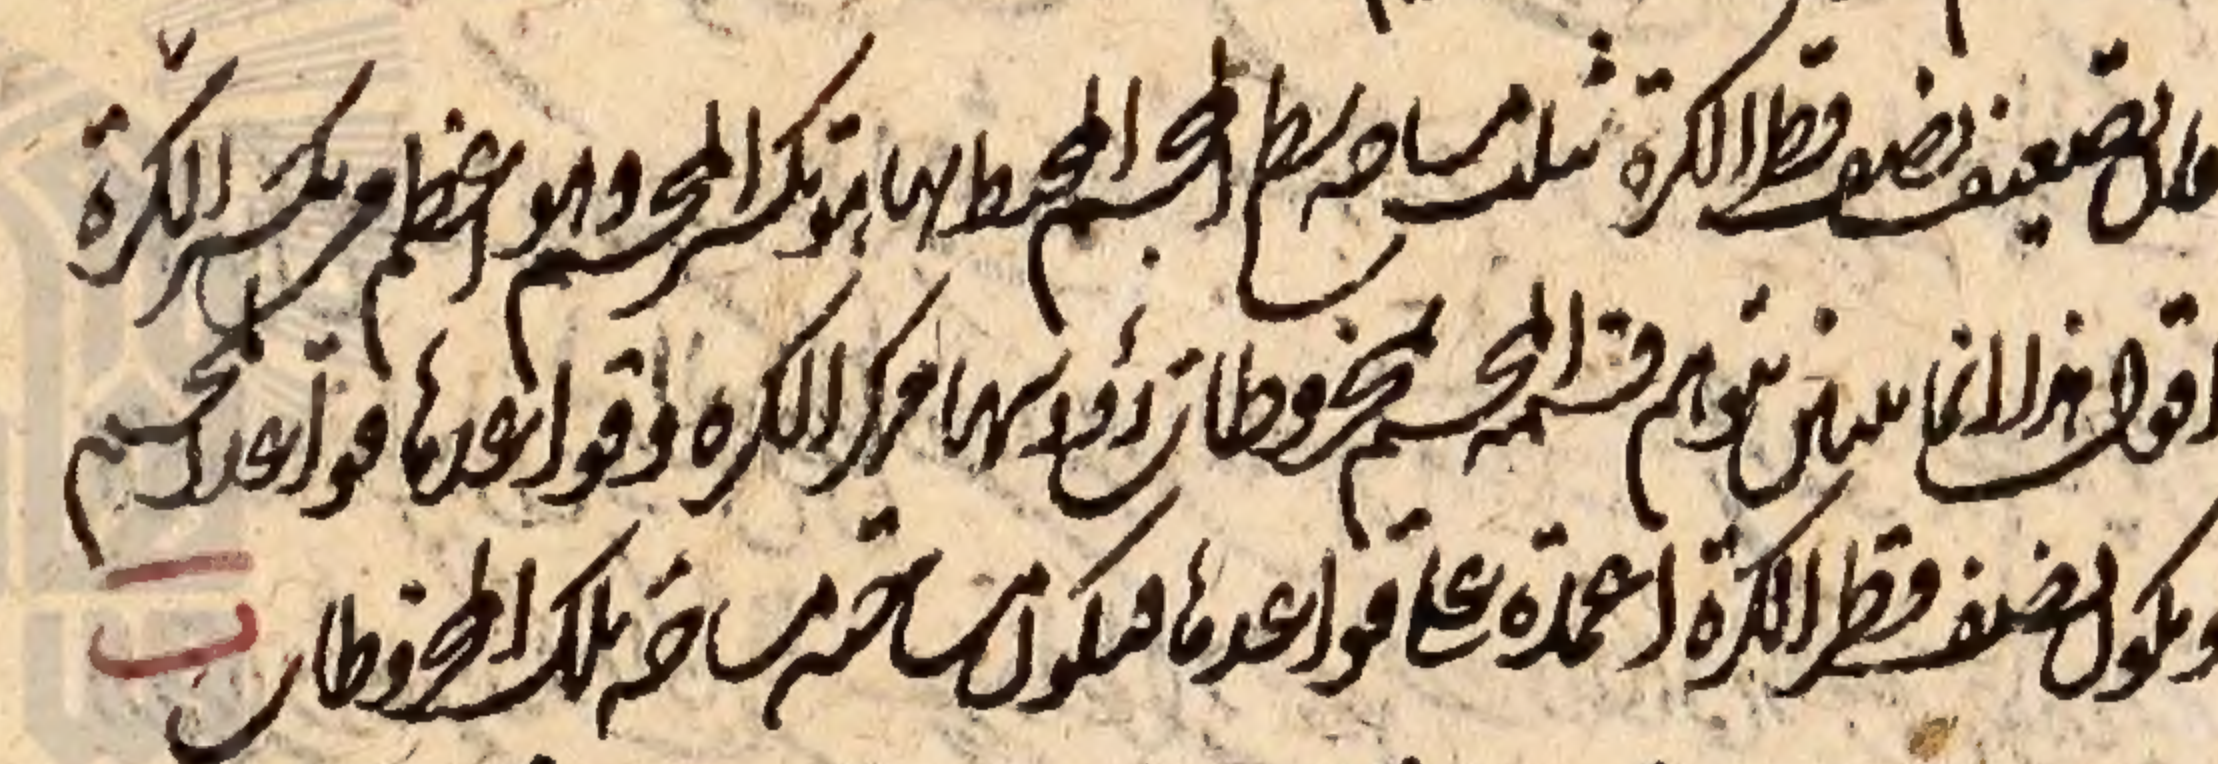 فاذن تضعيف نصف قطر الكرة ثلث مساحة سطح المجسم المحيط بها هو تكسير المجسم وهو اعظم من تكسير الكرة
اقول هذا انما يتبين بتوهم قسمة المجسم بمخروطات رؤوسها مركز الكرة وقواعدها قواعد المجسم
ويكون نصف قطر الكرة اعمدة على قواعدها فيكون مساحته مساحة تلك المخروطات
ب